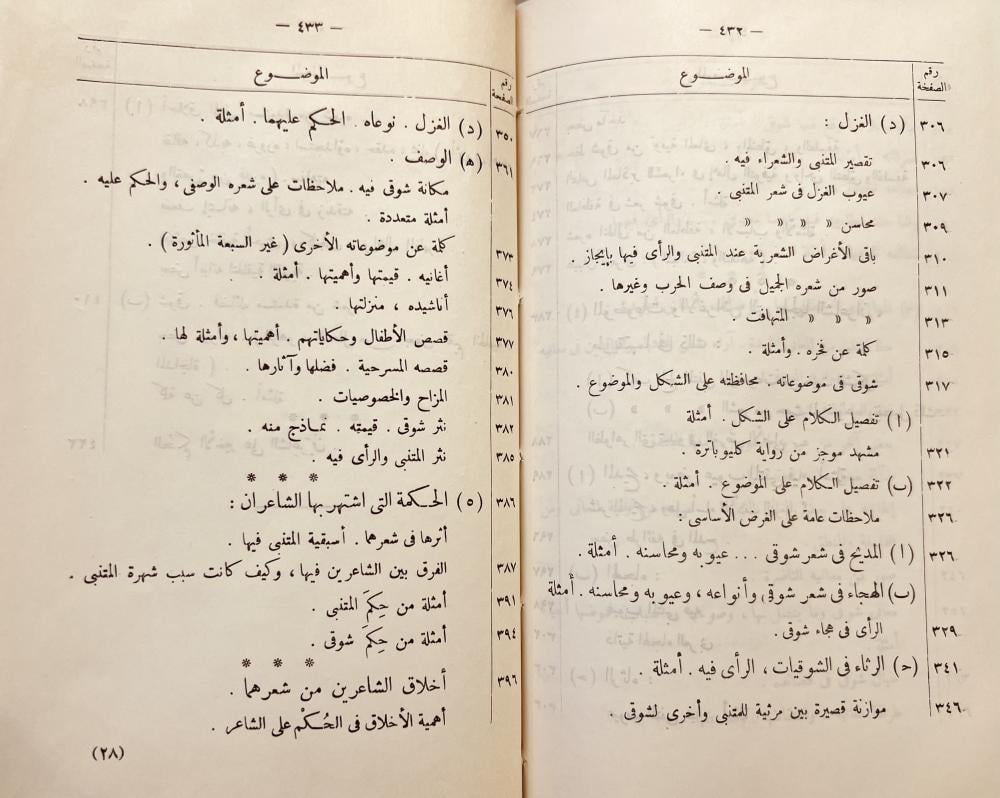 — ٤٣٢ —
رقم الصفحة الموضــــوع
٣٠٦ (د) الغزل :
٣٠٦ تقصير المتنبى والشعراء فيه .
٣٠٧ عيوب الغزل فى شعر المتنبى .
٣٠٩ محاسن » » » »
٣١٠ باقى الأغراض الشعرية عند المتنبى والرأى فيها بإيجاز .
٣١١ صور من شعره الجميل فى وصف الحرب وغيرها .
٣١٣ » » » المتهافت .
٣١٥ كلمة عن فخره . وأمثلة .
٣١٧ شوقى فى موضوعاته . محافظته على الشكل والموضوع .
(ا) تفصيل الكلام على الشكل . أمثلة
٣٢١ مشهد موجز من رواية كليوباترة .
٣٢٢ (ب) تفصيل الكلام على الموضوع . أمثلة .
٣٢٦ ملاحظات عامة على الغرض الأساسى :
٣٢٦ (ا) المديح فى شعر شوقى ... عيوبه ومحاسنه . أمثلة .
(ب) الهجاء فى شعر شوقى وأنواعه ، وعيوبه ومحاسنه . أمثلة
٣٢٩ الرأى فى هجاء شوقى .
٣٤١ (ح) الرثاء فى الشوقيات ، الرأى فيه . أمثلة .
٣٤٦ موازنة قصيرة بين مرثية للمتنبى وأخرى لشوقى .
— ٤٣٣ —
رقم الصفحة الموضــــوع
٣٥٠ (د) الغزل . نوعاه . الحكم عليهما . أمثلة .
٣٦١ (ه) الوصف .
مكانة شوقى فيه . ملاحظات على شعره الوصفى ، والحكم عليه .
أمثلة متعددة .
٣٧٣ كلمة عن موضوعاته الأخرى (غير السبعة المأثورة) .
٣٧٤ أغانيه . قيمتها وأهميتها . أمثلة .
٣٧٦ أناشيده ، منزلتها .
٣٧٧ قصص الأطفال وحكاياتهم . أهميتها ، وأمثلة لها .
٣٨٠ قصصه المسرحية . فضلها وآثارها .
٣٨١ المزاح والخصوصيات .
٣٨٢ نثر شوقى . قيمته . نماذج منه .
٣٨٥ نثر المتنبى والرأى فيه .
* * *
٣٨٦ (٥) الحكمة التى اشتهر بها الشاعران :
أثرها فى شعرهما . أسبقية المتنبى فيها .
٣٨٧ الفرق بين الشاعرين فيها ، وكيف كانت سبب شهرة المتنبى .
٣٩١ أمثلة من حِكَمَ المتنبى .
٣٩٤ أمثلة من حِكَمَ شوقى .
* * *
٣٩٦ أخلاق الشاعرين من شعرهما .
أهمية الأخلاق فى الحُكْم على الشاعر .
(٢٨)